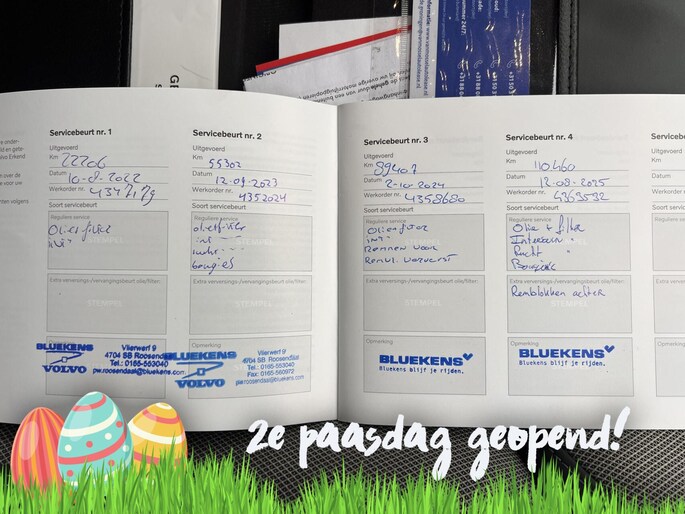 Servicebeurt nr. 1
Uitgevoerd
Km 22206
Datum 10-08-2022
Werkorder nr. 4347179
Soort servicebeurt
Reguliere service
Extra verversings-/vervangingsbeurt olie/filter:
STEMPEL
BLUEKENS
VOLVO
Vlierwerf 9
4704 SB Roosendaal
Tel.: 0165-553040
pw.roosendaal@bluekens.com
Servicebeurt nr. 2
Uitgevoerd
Km 55302
Datum 12-09-2023
Werkorder nr. 4352024
Soort servicebeurt
Reguliere service
bougies
Extra verversings-/vervangingsbeurt olie/filter:
STEMPEL
Opmerking
BLUEKENS
VOLVO
Vlierwerf 9
4704 SB Roosendaal
Tel.: 0165-553040
Fax: 0165-560972
pw.roosendaal@bluekens.com
Servicebeurt nr. 3
Uitgevoerd
Km 89407
Datum 2-10-2024
Werkorder nr. 4358680
Soort servicebeurt
Reguliere service
Oliefilter
int
Remmen voor
Remvl. ververst
Extra verversings-/vervangingsbeurt olie/filter:
STEMPEL
Opmerking
BLUEKENS
Bluekens blijf je rijden.
Servicebeurt nr. 4
Uitgevoerd
Km 110460
Datum 12-08-2025
Werkorder nr. 4363532
Soort servicebeurt
Reguliere service
Olie + filter
Interieur "
Lucht "
Bougies
Extra verversings-/vervangingsbeurt olie/filter:
Remblokken achter
STEMPEL
Opmerking
BLUEKENS
Bluekens blijf je rijden.
2e paasdag geopend!